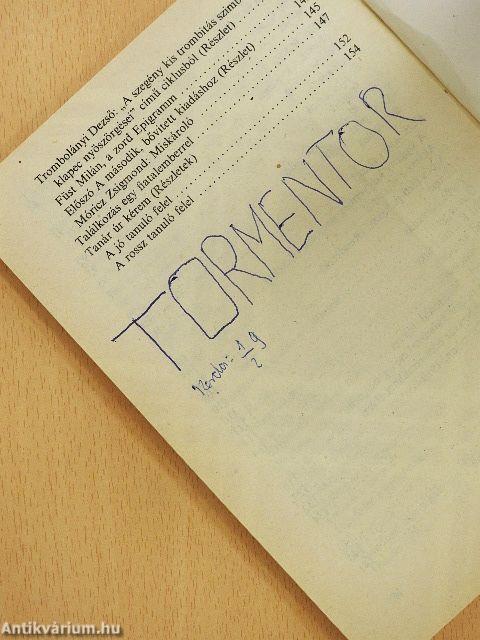 Trombolányi Dezső: „A szegény kis trombitás szimb
klapec nyöszörgései" című ciklusból (Részlet)
Füst Milán, a zord Epigramm . . . . . . . . . 145
Előszó A második, bővített kiadáshoz (Részlet) 147
Móricz Zsigmond: Miskároló . . . . . . . . .
Találkozás egy fiatalemberrel . . . . . . . . 152
Tanár úr kérem (Részletek) . . . . . . . . . 154
A jó tanuló felel . . . . . . . . .
A rossz tanuló felel . . . . . . . . .
TORMENTOR
1/2 9
Antikvárium.hu